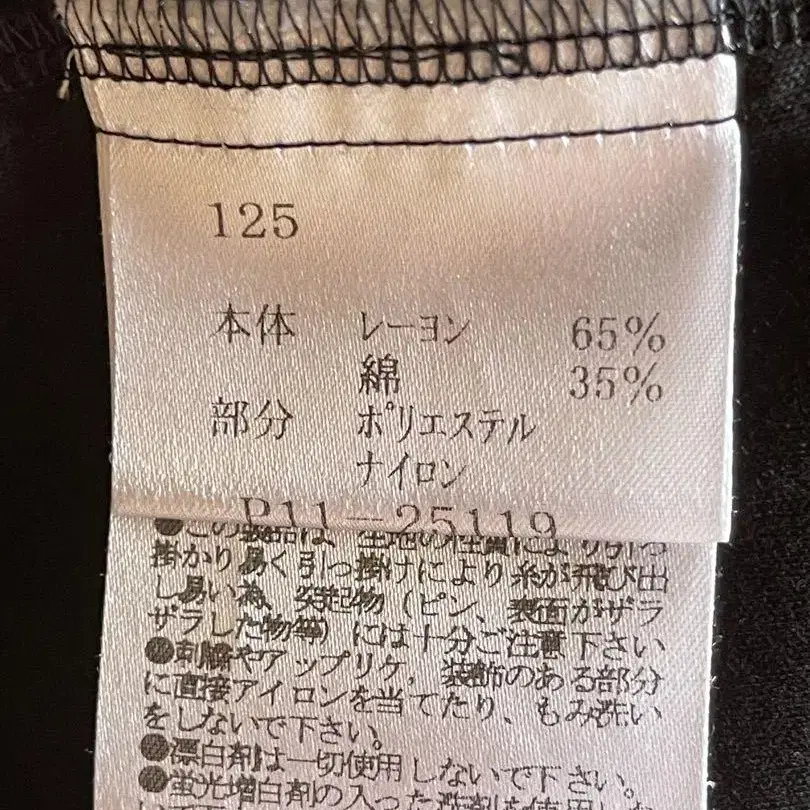 125
本体 レーヨン 65%
綿 35%
部分 ポリエステル
ナイロン
P11-25119
●この製品は 生地の性質により引っ
掛かり易く引っ掛けにより糸が飛び出
し易い為、突起物（ピン、表面がザラ
ザラした物等）には十分ご注意下さい
●刺繍やアップリケ，装飾のある部分
に直接アイロンを当てたり、もみ洗い
をしないで下さい。
●漂白剤は一切使用しないで下さい。
●蛍光増白剤の入った洗剤を使用